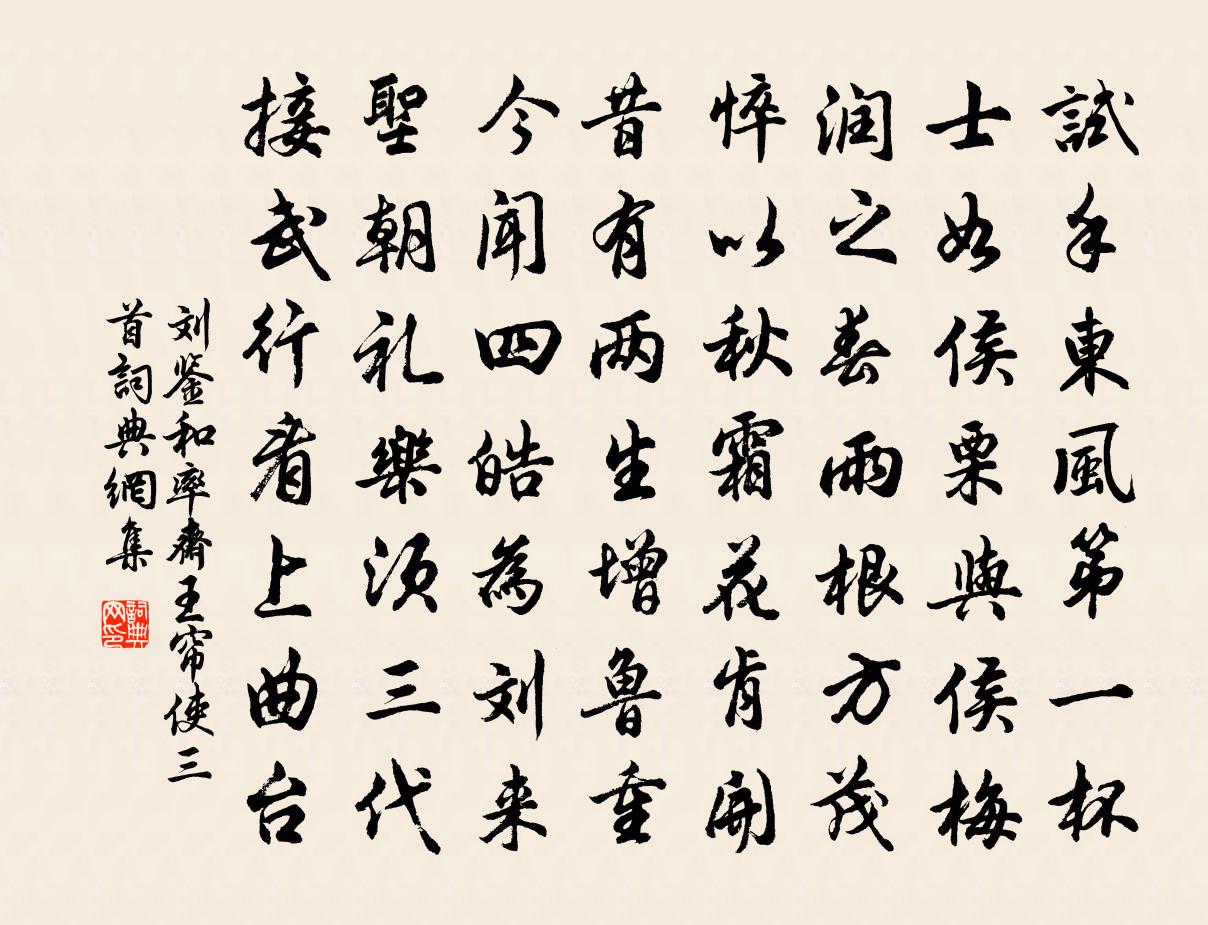 試手東風第一杯
士如侯栗與侯梅
润之春雨根方茂
悴以秋霜花肯開
昔有两生增魯重
今聞四皓為刘来
聖朝礼樂须三代
接武行看上曲台
刘鉴和率齋王帘使三
首詞典網集
詞典
网印